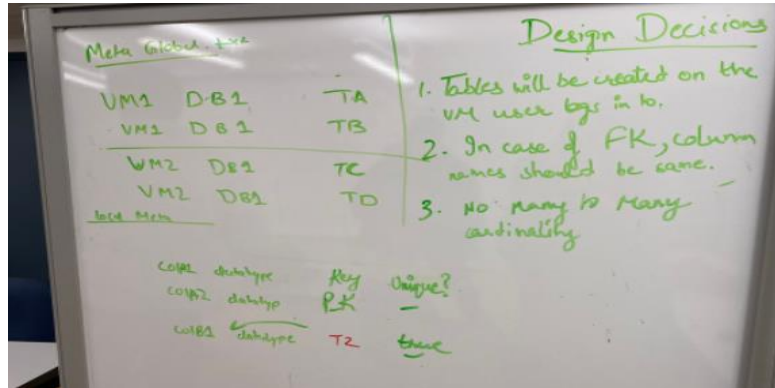 Meta Global.txt
VM1 DB1 TA
VM1 DB1 TB
VM2 DB1 TC
VM2 DB1 TD
local Meta
colA1 datatype Key Unique?
colA2 datatyp PK -
colB1 datatype T2 true
Design Decisions
1. Tables will be created on the
VM user logs in to.
2. In case of FK, column
names should be same.
3. No many to Many
cardinality